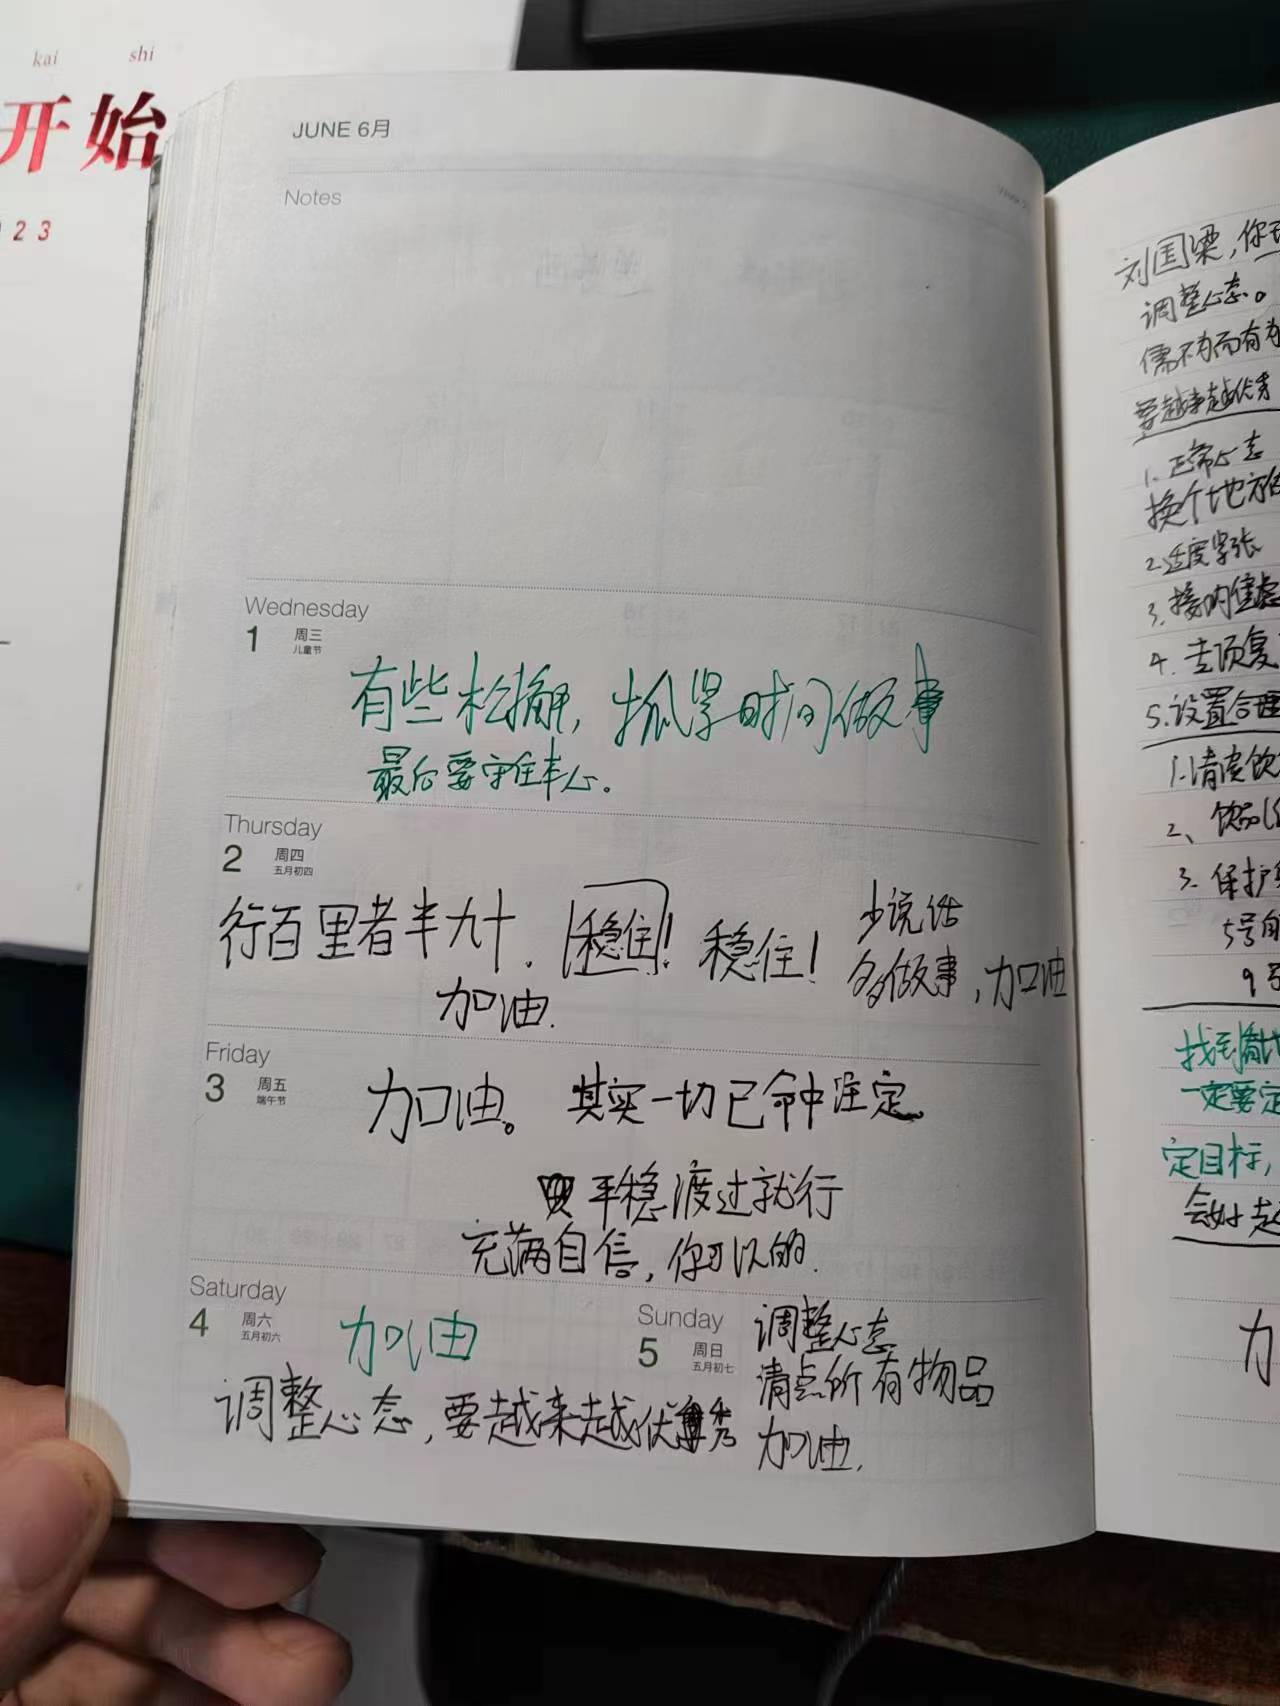 kai shi
开始
23
JUNE 6月
Notes
Wednesday
1 周三
儿童节
有些松懈,抓紧时间做事
最后要守住本心。
Thursday
2 周四
五月初四
行百里者半九十. 稳住! 稳住! 少说话
多做事,加油
加油.
Friday
3 周五
端午节
加油。其实一切已命中注定。
平稳渡过就行
充满自信,你可以的.
Saturday
4 周六
五月初六
加油
调整心态,要越来越优秀
Sunday
5 周日
五月初七
调整心态
清点所有物品
加油.
刘国梁,你
调整心态。
儒不为而有为
要越来越优秀
1. 正常心态
换个地方
2.适度紧张
3.接纳焦虑
4.
5.设置合理
1.清淡饮
2、饮品
3.保护
5号
9号
找到
一定要定
定目标,
会好